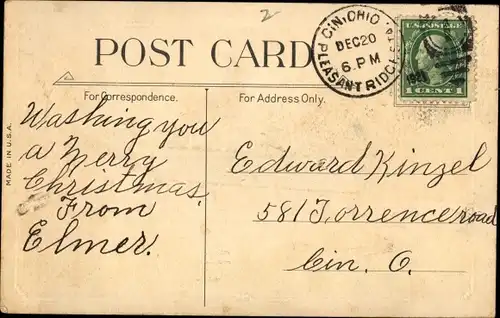 2
POST CARD
CIN. OHIO
DEC 20
6. PM
PLEASANT RIDGE
U.S. POSTAGE
1 CENT 1
For Correspondence.
For Address Only.
MADE IN U.S.A.
Washing you
a Merry
Christmas.
From
Elmer.
Edward Kinzel
581 Torrence road
Cin. O.